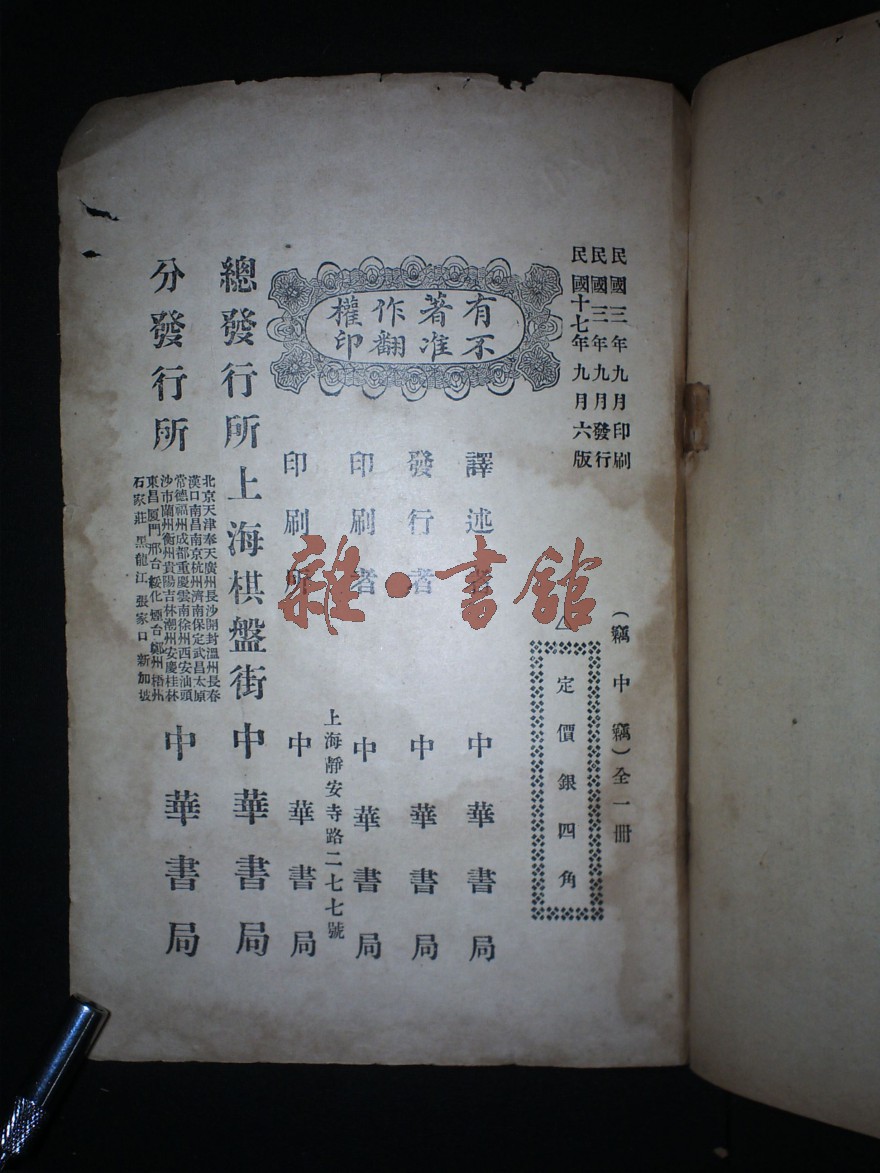 民國三年九月印刷
民國三年九月發行
民國十七年九月六版
(竊中竊)全一冊
定價銀四角
有著作權
不准翻印
譯述者 中華書局
發行者 中華書局
印刷者 中華書局
上海靜安寺路二七七號
印刷所 中華書局
總發行所 上海棋盤街 中華書局
分發行所 中華書局
北京天津奉天廣州長沙開封溫州長春
漢口南昌南京杭州濟南保定武昌太原
常德福州成都重慶雲南徐州西安汕頭
沙市蘭州衡州貴陽吉林潮州安慶桂林
東昌厦門邢台綏化煙台鄭州梧州
石家莊 黑龍江 張家口 新加坡
雜·書館